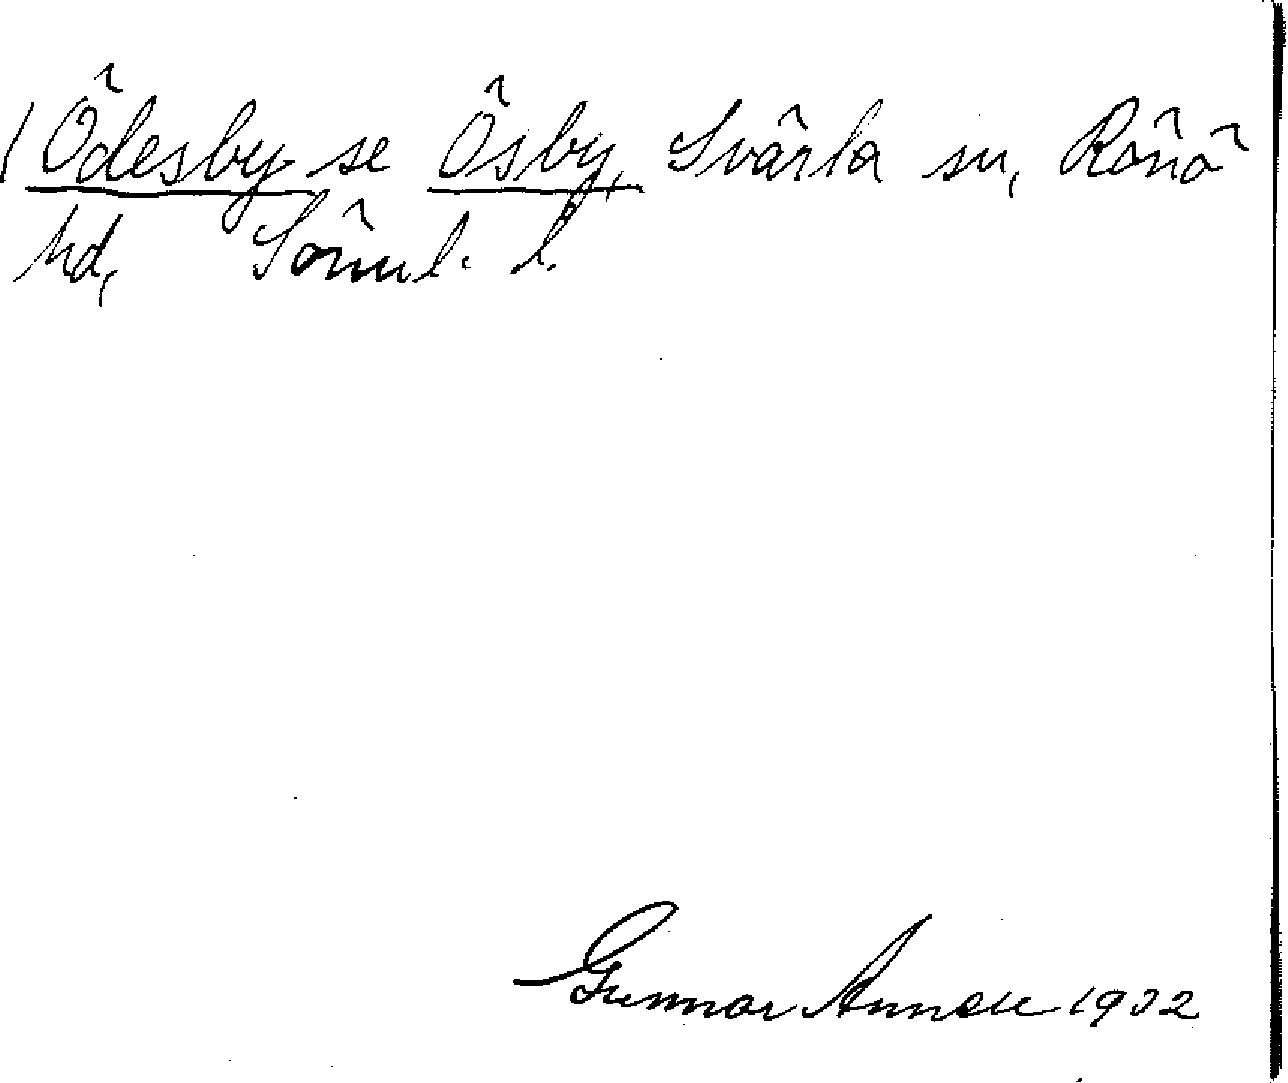 (Ödesby se Ösby, Svärta sn, Rönö
hd, Sörml. l.
Gunnar Annell 1932